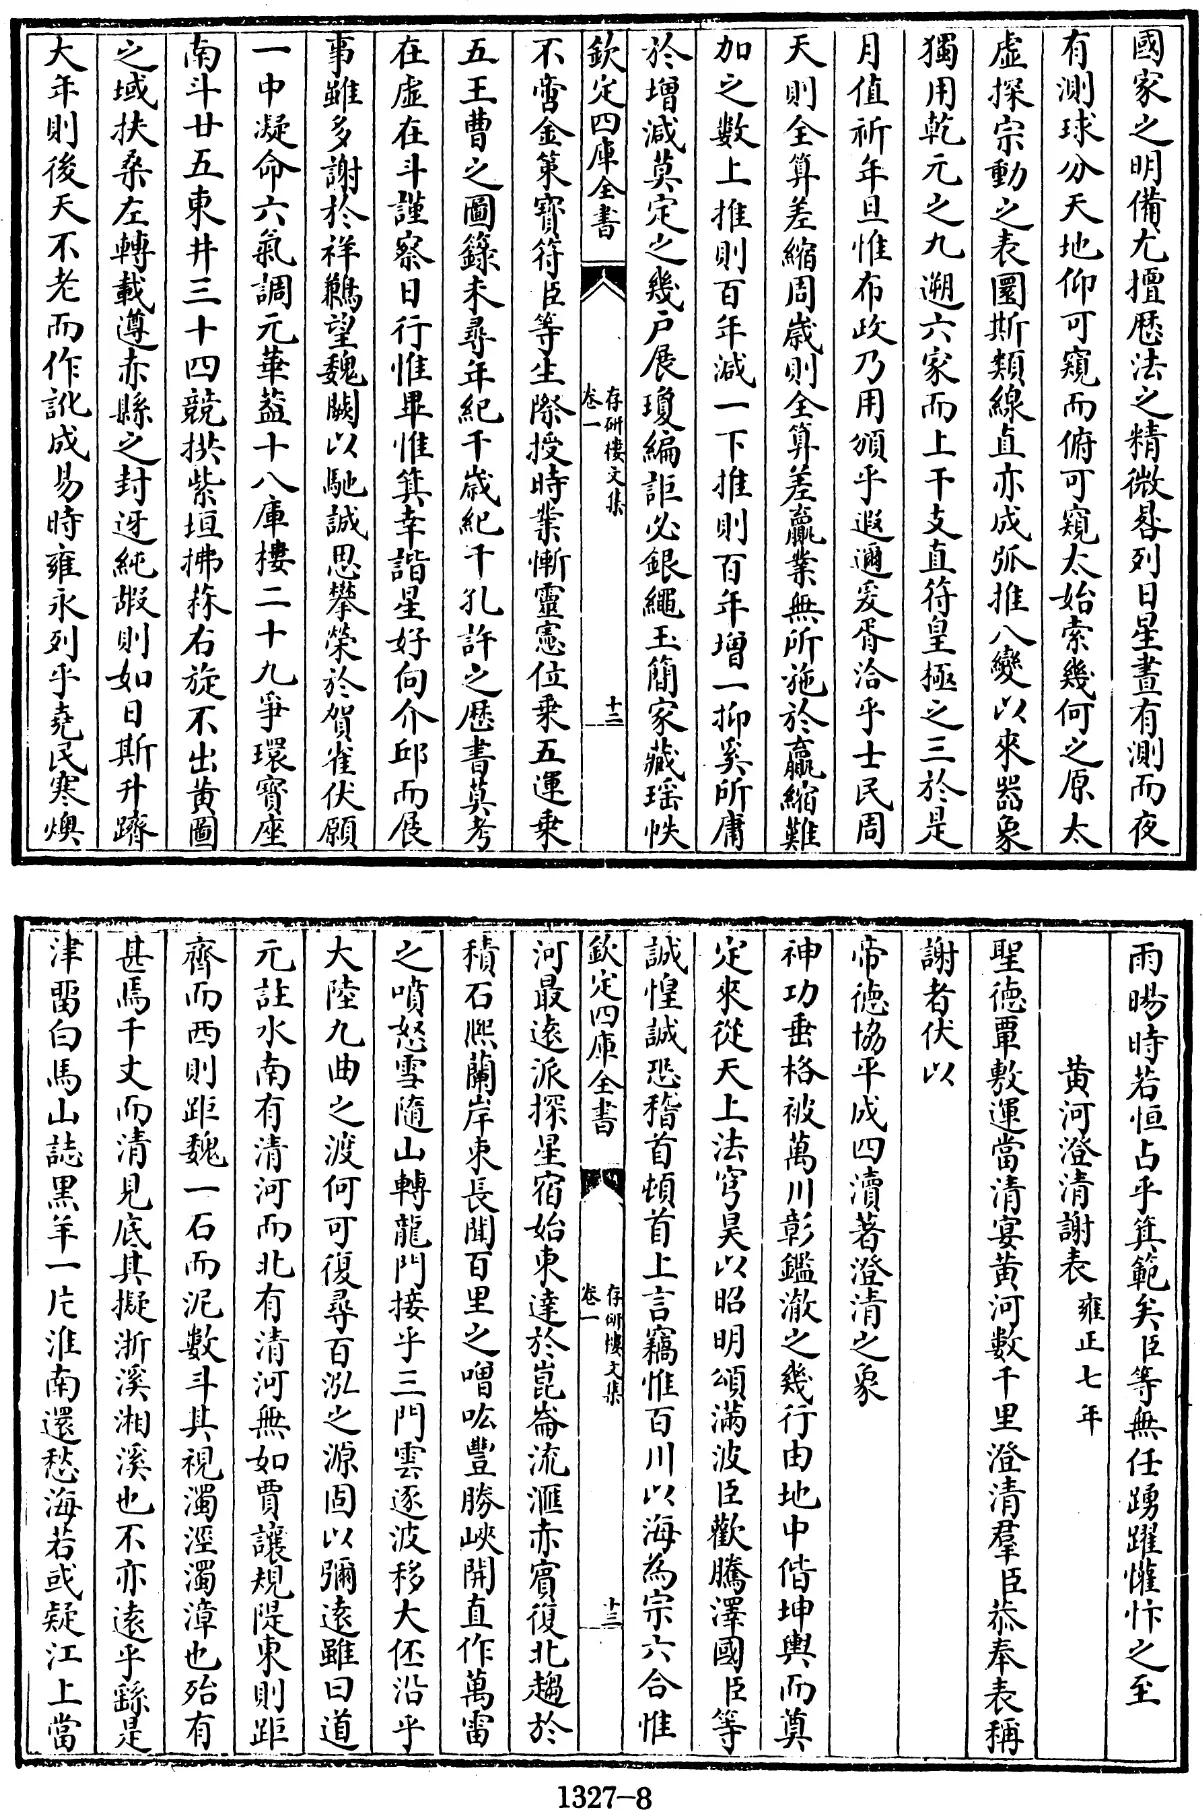 國家之明備尤擅厯法之精微晷列日星晝有測而夜
有測球分天地仰可窺而俯可窺太始索幾何之原太
虛探宗動之表圜斯類線直亦成弧推八變以來器象
獨用乾元之九遡六家而上干支直符皇極之三於是
月值祈年旦惟布政乃用頒乎遐邇爰胥洽乎士民周
天則全算差縮周歲則全算差贏業無所施於贏縮難
加之數上推則百年減一下推則百年增一抑奚所庸
於增減莫定之幾戶展瓊編詎必銀繩玉簡家藏瑶帙
欽定四庫全書
存研樓文集
卷一
十二
不啻金策寶符臣等生際授時業慚靈憲位乗五運乗
五王曹之圖籙未尋年紀千歲紀千孔許之厯書莫考
在虛在斗謹察日行惟畢惟箕幸諧星好向介邱而展
事雖多謝於祥鶼望魏闕以馳誠思攀榮於賀雀伏願
一中凝命六氣調元華葢十八庫樓二十九爭環寶座
南斗廿五東井三十四競拱紫垣拂䅈右旋不出黄圖
之域扶桑左轉載遵赤縣之封迓純嘏則如日斯升躋
大年則後天不老而作訛成易時雍永列乎堯民寒燠
雨暘時若恒占乎箕範矣臣等無任踴躍懽忭之至
黄河澄清謝表雍正七年
聖德覃敷運當清宴黄河數千里澄清羣臣恭奉表稱
謝者伏以
帝德協平成四瀆著澄清之象
神功垂格被萬川彰鑑澈之幾行由地中偕坤輿而奠
定來從天上法穹昊以昭明頌滿波臣歡騰澤國臣等
誠惶誠恐稽首頓首上言竊惟百川以海為宗六合惟
欽定四庫全書
存研樓文集
卷一
十三
河最遠派探星宿始東達於崑崙流滙赤賓復北趨於
積石熈蘭岸束長聞百里之噌吰豐勝峽開直作萬雷
之噴怒雪隨山轉龍門接乎三門雲逐波移大伾沿乎
大陸九曲之渡何可復尋百泓之源固以彌遠雖曰道
元註水南有清河而北有清河無如賈讓規隄東則距
齊而西則距魏一石而泥數斗其視濁涇濁漳也殆有
甚焉千丈而清見底其擬浙溪湘溪也不亦遠乎繇是
津留白馬山誌黑羊一片淮南還愁海若或疑江上當
1327-8